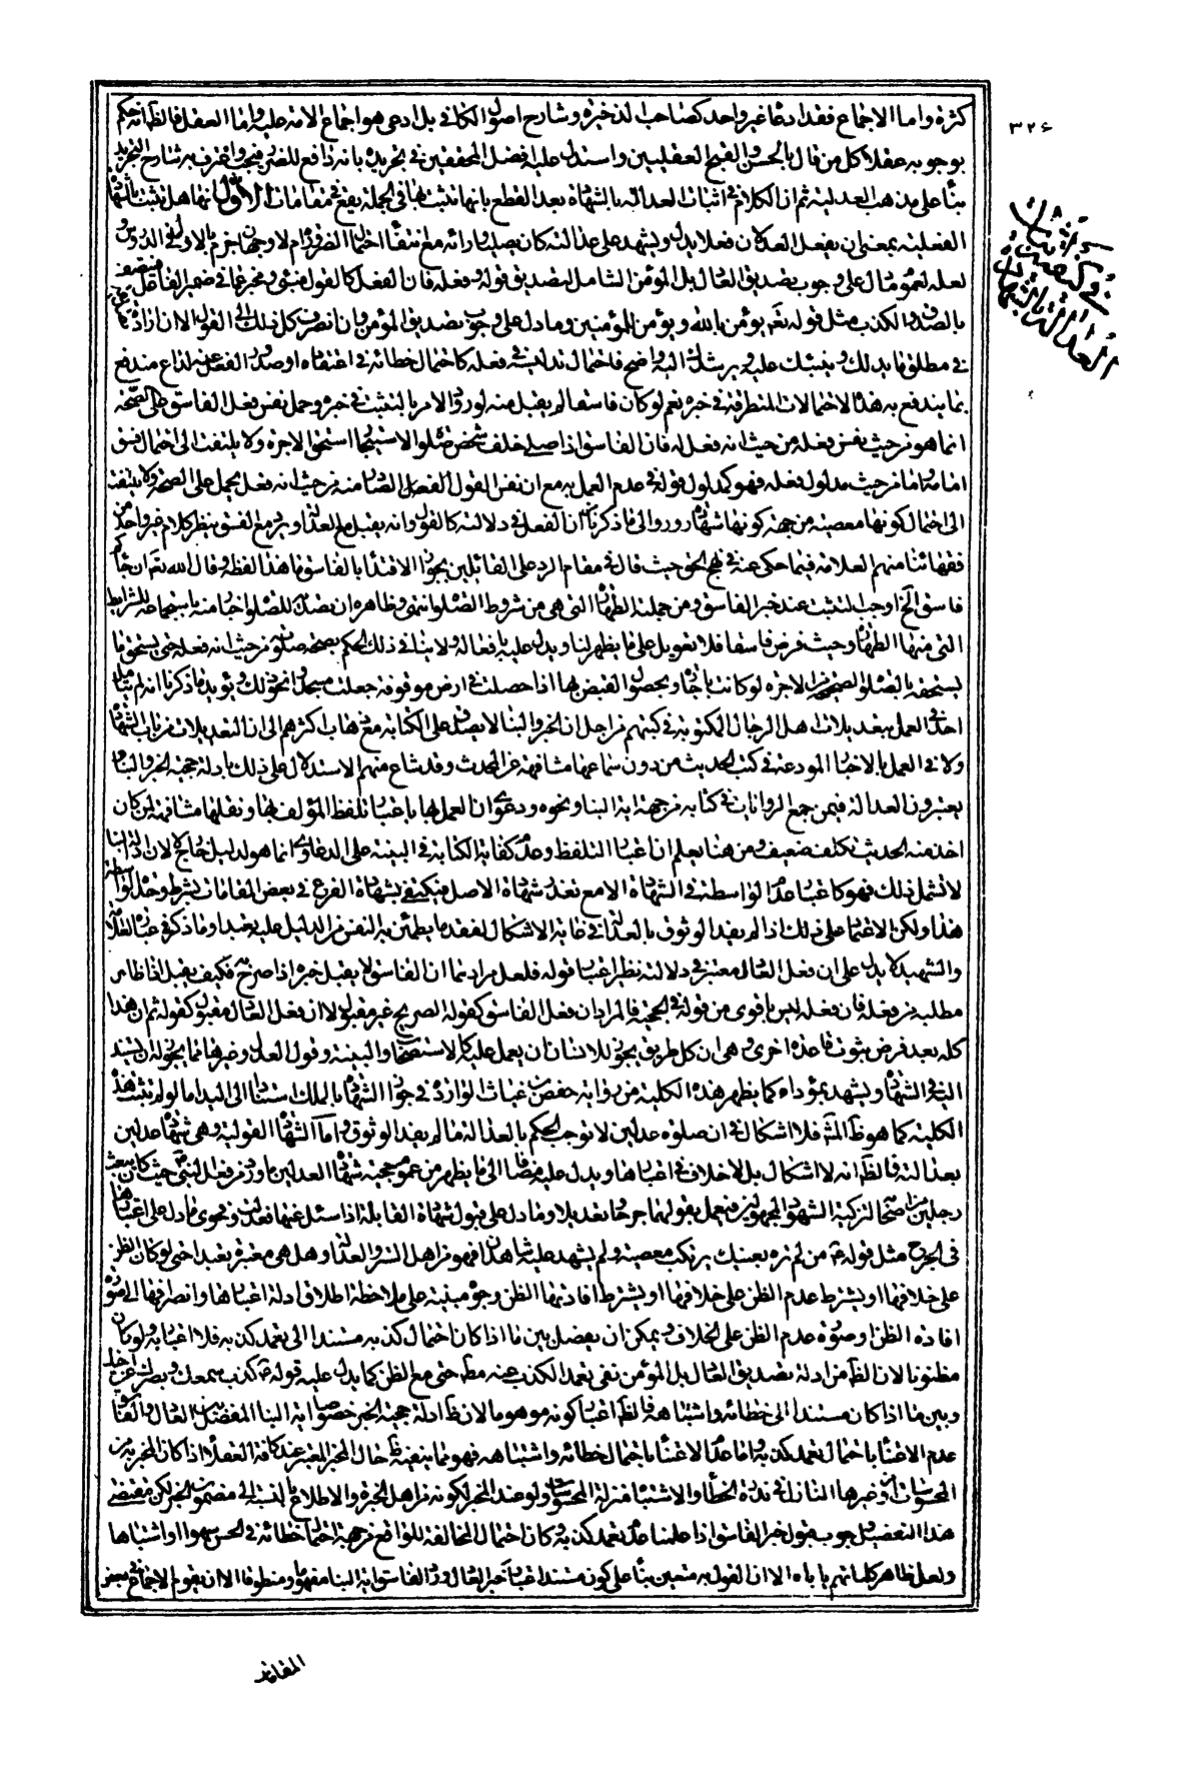 ٣٢٤
في كيفية اثبات العدالة بالشهادة
كثرة واما الاجماع فقد ادعاه غير واحد كصاحب الذخيرة وشارح اصول الكافي بل ادعى هو اجماع الامة عليه واما العقل فالظاهر انه حكم
بوجوبه عقلا كل من قال بالحسن والقبح العقليين واستدل عليه افضل المحققين في تجريده بانه دافع للضرر فيجب واعترف به شارح التجريد
بناء على مذهب العدلية ثم ان الكلام في اثبات العدالة بالشهادة بعد القطع بانها تثبت بها في الجملة يقع في مقامات الاول انها هل تثبت بالشهادة
الفعلية بمعنى ان يفعل العدلان فعلا يدل ويشهد على عدالته كان يصليا ورائه مع انتفاء احتمال الضرورة ام لا وجهان جزم بالاول في الدروس
لعله لعموم ما دل على وجوب تصديق العادل بل المؤمن الشامل لتصديق قوله وفعله فان الفعل كالقول منبئ ومخبر عما في ضمير الفاعل فيتصف
بالصدق والكذب مثل قوله تعالى يؤمن بالله ويؤمن للمؤمنين وما دل على وجوب تصديق المؤمن وان انصرف كل ذلك الى القول الا ان ارادة
في مطلق ما يدلك وينبئك عليه ويرشدك اليه واضح فاحتمال تدليسه في فعله كاحتمال خطائه في اعتقاده او صدور الفعل عنه لداع مندفع
بما يندفع به هذه الاحتمالات المتطرقة في خبره نعم لو كان فاسقا لم يقبل منه لورود الامر بالتثبت في خبره وحمل نفس فعل الفاسق على الصحة
انما هو من حيث نفس فعله من حيث انه فعل له فان الفاسق اذا صلى خلف شخص صلوة الاستيجار استحق الاجرة ولا يلتفت الى احتمال فسق
امامه اما من حيث مدلول فعله فهو كمدلول قوله في عدم العمل به مع ان نفس القول الفعل الصادر منه من حيث انه فعل يحمل على الصحة ولا يلتفت
الى احتمال كونها معصية من جهة كونها شهادة زور والى ما ذكرنا من ان الفعل في دلالته كالقول وانه يقبل مع العدالة ويرد مع الفسق ينظر كلام غير واحد من
فقهائنا منهم العلامة فيما حكى عنه في نهج الحق حيث قال في مقام الرد على القائلين بجواز الاقتداء بالفاسق ما هذا لفظه وقال الله تعالى ان جائكم
فاسق الخ اوجب التثبت عند خبر الفاسق ومن جملته الطهارة التي هي من شروط الصلوة انتهى وظاهره ان تصديه للصلوة اخبار منه باستجماعه للشرايط
التي منها الطهارة وحيث فرض فاسقا فلا تعويل على ما يظهر لنا ويدل عليه بافعاله ولا ينافي ذلك الحكم بصحة صلوته من حيث انه فعله حتى يستحق ما
يستحقه بالصلوة الصحيحة من الاجرة لو كانت باجارة ويحصل القبض بها اذا حصلت في ارض موقوفة جعلت مسجدا ونحو ذلك ويؤيد ما ذكرنا انه لم يتامل
احد في العمل بتعديلات اهل الرجال المكتوبة في كتبهم من اجل ان الخبر والنبأ لا يصدق على الكتابة مع ذهاب اكثرهم الى ان التعديلات من باب الشهادة
ولا في العمل بالاخبار المودعة في كتب الحديث من دون سماعها مشافهة عن المحدث وقد شاع منهم الاستدلال على ذلك بادلة حجية الخبر والنبأ ولم
يعتبرون العدالة فيمن جمع الروايات في كتابه من جهة اية النبأ ونحوه ودعوى ان العمل بها باعتبار تلفظ المؤلف بها ونقلها مشافهة لمن كان
اخذ منه الحديث تكلف ضعيف ومن هنا يعلم ان اعتبار التلفظ وعدم كفاية الكتابة في البينة على الدعاوي انما هو لدليل خارج لا لان ادلة النبأ
لا تشمل ذلك فهو كاعتبار عدم الواسطة في الشهادة الا مع تعذر شهادة الاصل فيكتفى بشهادة الفرع في بعض المقامات بشرط وحدة الواسطة
هذا ولكن الاعتماد على ذلك اذا لم يفد الوثوق بالعدالة في غاية الاشكال لفقد ما يطمئن به النفس من الدليل عليه تعبدا وما ذكر في عبارة العلامة
والشهيد لا يدل على ان فعل العادل معتبر في دلالته نظير اعتبار قوله فلعل مرادهما ان الفاسق لا يقبل خبره اذا صرح به فكيف يقبل اذا ظهر
مطلبه من فعله فان فعله ليس باقوى من قوله في الحجية فالمراد ان فعل الفاسق كقوله الصريح غير مقبول لا ان فعل العادل مقبول كقوله ثم ان هذا
كله بعد فرض ثبوت قاعدة اخرى وهي ان كل طريق يجوز للانسان ان يعمل عليه كالاستصحاب والبينة وقول العدل وغيرها مما يجوز له ان يستند
اليه في الشهادة ويشهد بمؤداه كما يظهر هذه الكلية من رواية حفص بن غياث الواردة في جواز الشهادة بالملك استنادا الى اليد اما لو لم تثبت هذه
الكلية كما هو ظاهر المشهور فلا اشكال في ان صلوة عدلين لا توجب الحكم بالعدالة ما لم يفد الوثوق واما الشهادة القولية وهي شهادة عدلين
بعدالته فالظاهر انه لا اشكال بل لا خلاف في اعتبارها ويدل عليه مضافا الى ما يظهر من عموم حجية شهادة العدلين ما ورد من فعل النبي ص حيث كان يبعث
رجلين من اصحابه لتزكية الشهود المجهولين فيعمل بقولهما جرحا وتعديلا وما دل على قبول شهادة القابلة اذا سئل عنها فعدلت وفحوى ما دل على اعتبارها
في الجرح مثل قوله ع من لم تره بعينك يرتكب معصية ولم يشهد عليه شاهدان فهو من اهل الستر والعدالة وهل هي معتبرة تعبدا حتى لو كان الظن
على خلافها او يشترط عدم الظن على خلافها او يشترط افادتها الظن وجوه مبنية على ملاحظة اطلاق ادلة اعتبارها وانصرافها الى صورة
افادة الظن او صورة عدم الظن على الخلاف ويمكن ان يفصل بين ما اذا كان احتمال كذبه مستندا الى تعمد كذبه فلا اعتبار به ولو كان
مظنونا لان الظاهر من ادلة تصديق العادل بل المؤمن نفي تعمد الكذب عنه مطلقا حتى مع الظن كما يدل عليه قوله ع كذب سمعك وبصرك عن اخيك
وبين ما اذا كان مستندا الى خطائه واشتباهه فالظاهر اعتبار كونه موهوما لان ظاهر ادلة حجية الخبر خصوصا اية النبأ المفصلة بين العادل والفاسق
عدم الاعتناء باحتمال تعمد كذبه واما عدم الاعتناء باحتمال خطائه واشتباهه فهو مما ينفيه ظاهر حال المخبر المعتبر عند كافة العقلاء اذا كان المخبر به من
المحسوسات او غيرها النازل في ندرة الخطأ والاشتباه منزلة المحسوسات ولو عند المخبر لكونه من اهل الخبرة والاطلاع بالنسبة الى مضمون الخبر لكن مقتضى
هذا التفصيل وجوب قبول خبر الفاسق اذا علمنا عدم تعمد كذبه وكان احتمال المخالفة للواقع من جهة احتمال خطائه في الحس سهوا او اشتباها
ولعل ظاهر كلماتهم يأباه الا ان القول به متعين بناء على كون مستند اعتبار خبر العادل ورد الفاسق اية النبأ مفهوما ومنطوقا الا ان يقوم الاجماع في بعض
المقامات